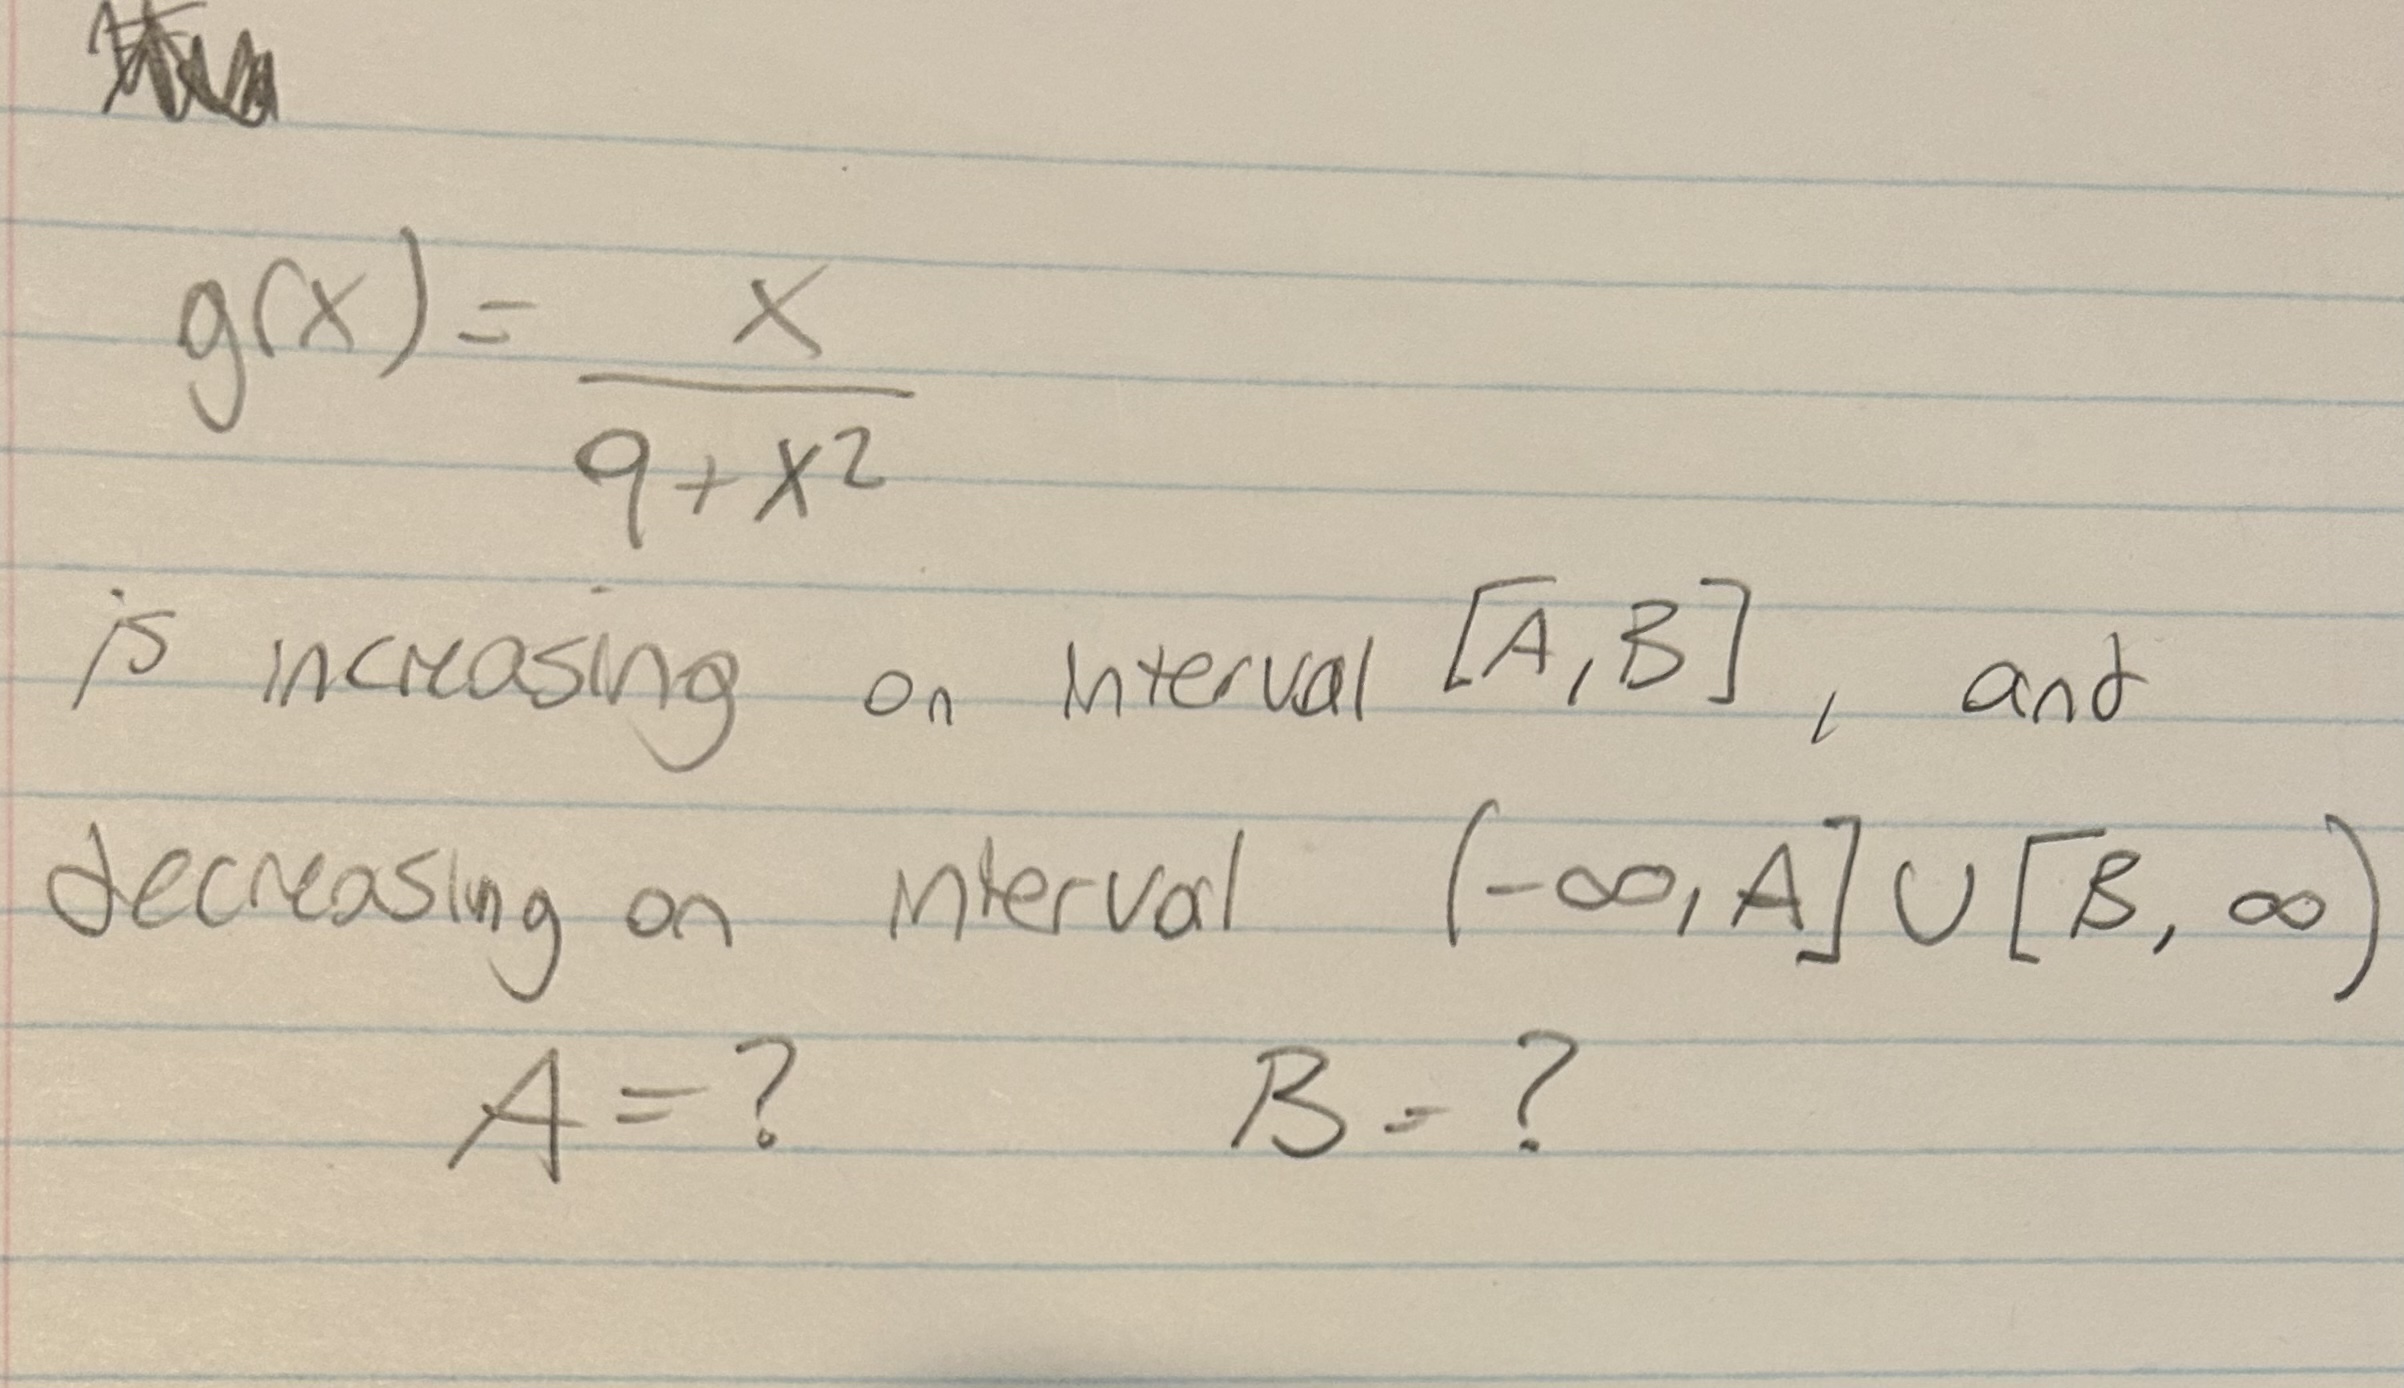 g(x) = x / (9 + x²)
is increasing on interval [A, B], and
decreasing on interval (-∞, A] ∪ [B, ∞)
A = ? B = ?